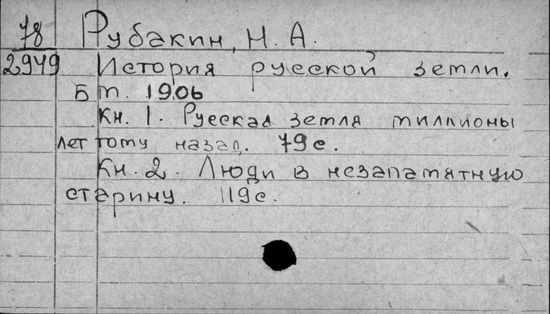 78 Рубакин, Н. А.
2949 История русской земли.
Б м. 1906
Кн. 1. Русская земля миллионы
лет тому назад. 79 с.
Кн. 2. Люди в незапамятную
старину. 119 с.